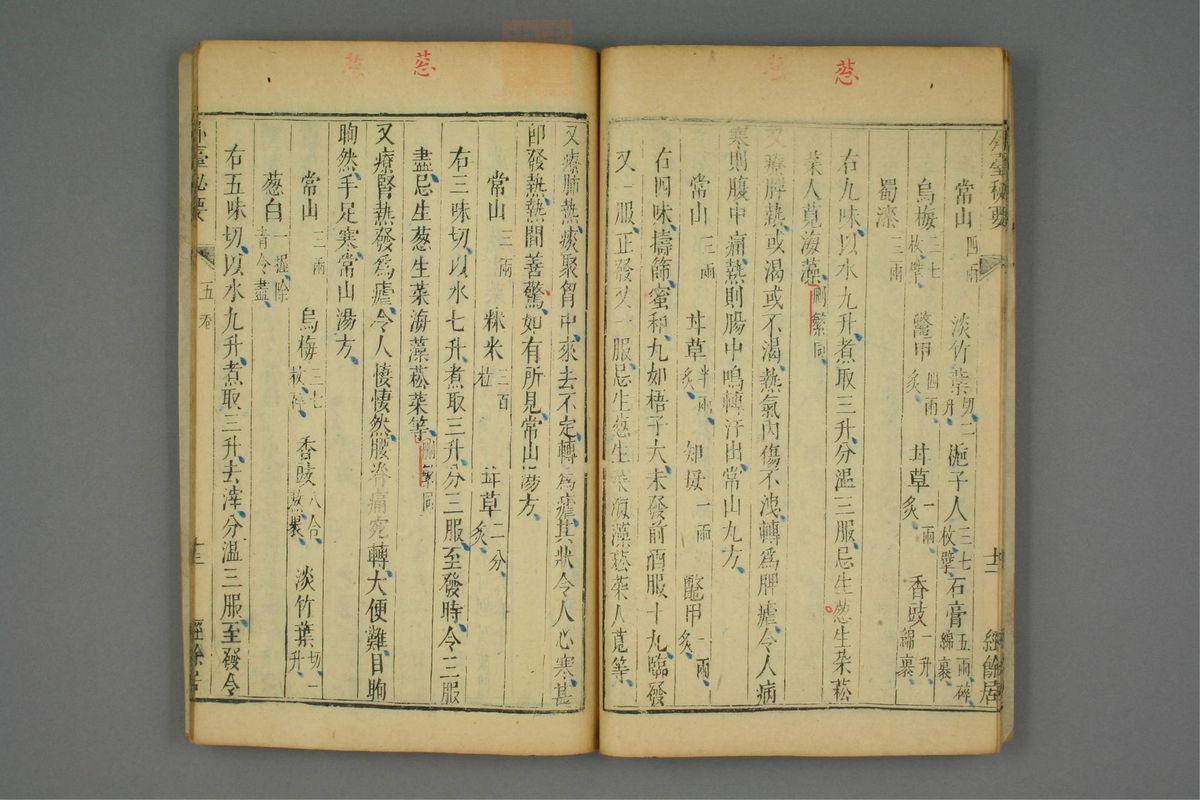 葱
常山四兩 淡竹葉切二升 梔子人三七枚擘 石膏五兩碎綿裹
烏梅二七枚擘 鼈甲四兩炙 甘草一兩炙 香豉一升綿裹
蜀漆三兩
右九味、以水九升、煮取三升、分溫三服、忌生葱生菜菘
菜人莧海藻、刪繁同、
又療脾熱、或渴或不渴、熱氣內傷不洩、轉爲脾瘧、令人病
寒則腹中痛、熱則腸中鳴、轉汗出、常山丸方、
常山三兩 甘草半兩炙 知母一兩 鼈甲一兩炙
右四味擣篩、蜜和、丸如梧子大、未發前酒服十丸、臨發
又一服、正發又一服、忌生葱生菜海藻菘菜人莧等、
外臺祕要 十二 經餘居
葱
又療肺熱痰聚胷中、來去不定、轉爲瘧、其狀令人心寒、甚
卽發熱、熱閒善驚、如有所見、常山湯方、
常山三兩 秫米三百粒 甘草二分炙
右三味切、以水七升、煮取三升、分三服、至發時、令三服
盡、忌生葱生菜海藻菘菜等、刪繁同
又療腎熱發爲瘧、令人悽悽然、腰脊痛宛轉、大便難、目眴
眴然、手足寒、常山湯方、
常山三兩 烏梅三七枚擘 香豉八合熬裹 淡竹葉切一升
葱白一握除青令盡
右五味切、以水九升、煮取三升、去滓、分溫三服、至發令
外臺祕要 五卷 十三 經餘居